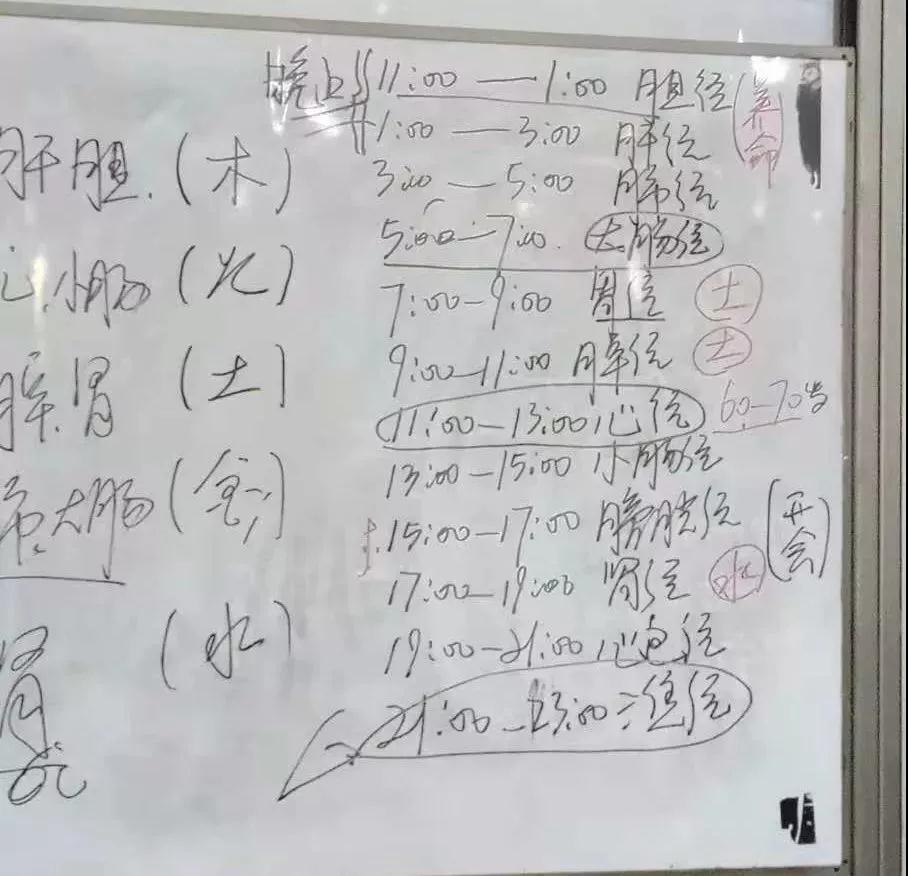 肝胆.(木)
心.小肠(火)
脾.胃(土)
大肠(金)
肾(水)
晚上 11:00—1:00 胆经
1:00—3:00 肝经
3:00—5:00 肺经
5:00—7:00. 大肠经
7:00—9:00 胃经 土
9:00—11:00 脾经 土
11:00—13:00 心经 60—70岁
13:00—15:00 小肠经
15:00—17:00 膀胱经 (开会)
17:00—19:00 肾经 水
19:00—21:00 心包经
21:00—23:00 三焦经